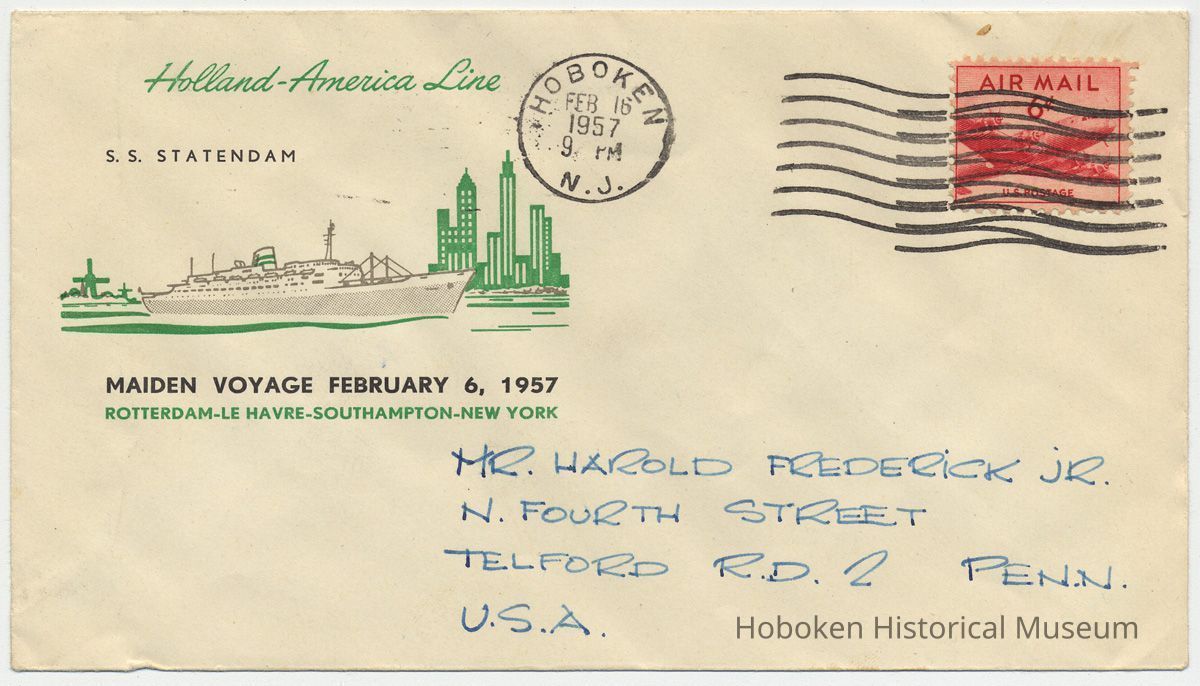 Holland-America Line
S. S. STATENDAM
HOBOKEN
FEB 16
1957
9 PM
N.J.
AIR MAIL
6¢
U.S. POSTAGE
MAIDEN VOYAGE FEBRUARY 6, 1957
ROTTERDAM-LE HAVRE-SOUTHAMPTON-NEW YORK
MR. HAROLD FREDERICK JR.
N. FOURTH STREET
TELFORD R.D. 2 PENN.
U.S.A.
Hoboken Historical Museum